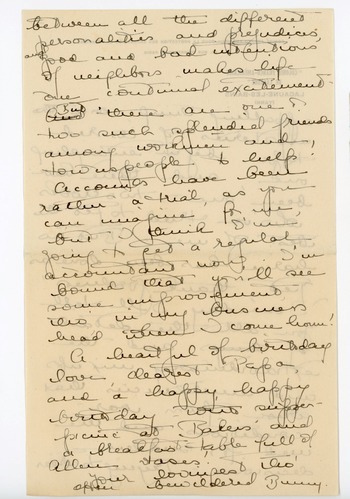 between all the different
personalities and prejudices,
and good and bad intentions
of neighbors makes life
one continual excitement.
But there are one or
two such splendid friends
among workmen and
townspeople to help!
Accounts have been
rather a trial, as you
can imagine for me,
but I think I'm
going to get a regular
accountant now. I'm
bound that you'll see
some improvement
tho' in my business
head when I come home!
A heartful of birthday
love dearest Papa,
and a happy, happy
birthday
at Bakers and
a breakfast-table full of
Allen roses.
your youngest tho'
often bewildered Bunny.